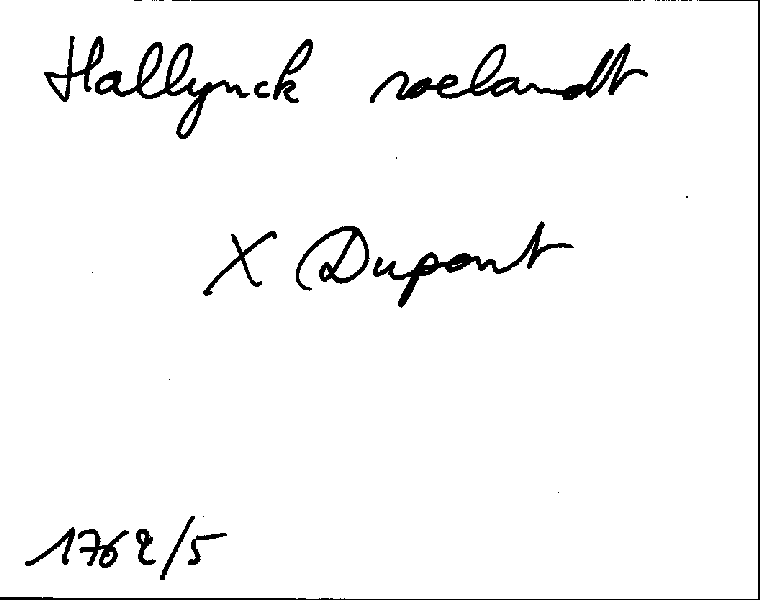 Hallynck roelandt
X Dupont
1762/5